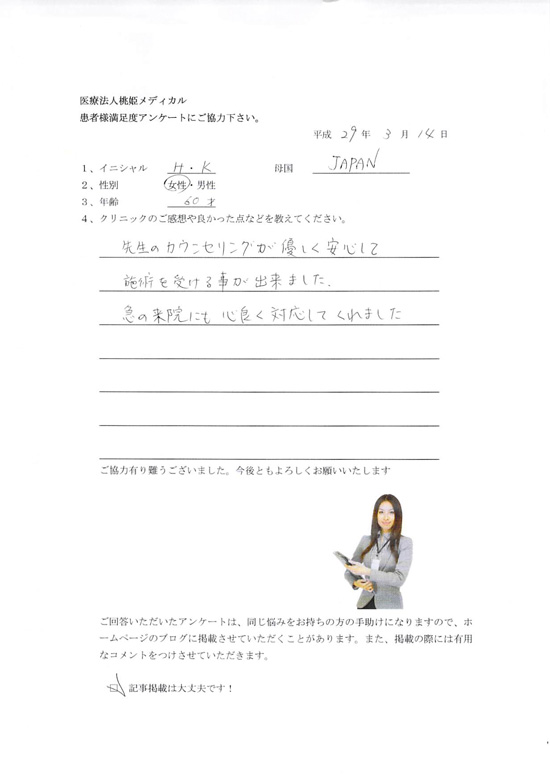 医療法人桃姫メディカル
患者様満足度アンケートにご協力下さい。
平成 29年 3月 14日
1、イニシャル H・K 母国 JAPAN
2、性別 女性・男性
3、年齢 60才
4、クリニックのご感想や良かった点などを教えてください。
先生のカウンセリングが優しく安心して
施術を受ける事が出来ました.
急の来院にも心良く対応してくれました
ご協力有り難うございました。今後ともよろしくお願いいたします
ご回答いただいたアンケートは、同じ悩みをお持ちの方の手助けになりますので、ホ
ームページのブログに掲載させていただくことがあります。また、掲載の際には有用
なコメントをつけさせていただきます。
☑記事掲載は大丈夫です！